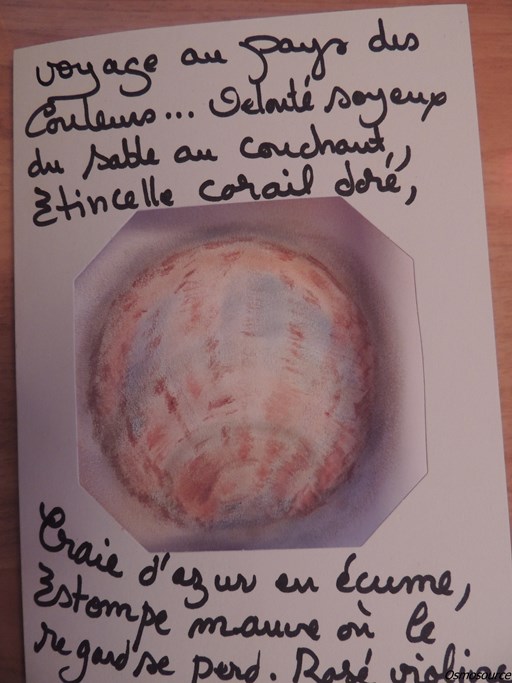 voyage au pays des
Couleurs... Velouté soyeux
du sable au couchant,
Etincelle corail doré,
Craie d'azur en écume,
Estompe mauve où le
regard se perd. Rosé violine
Osmosource